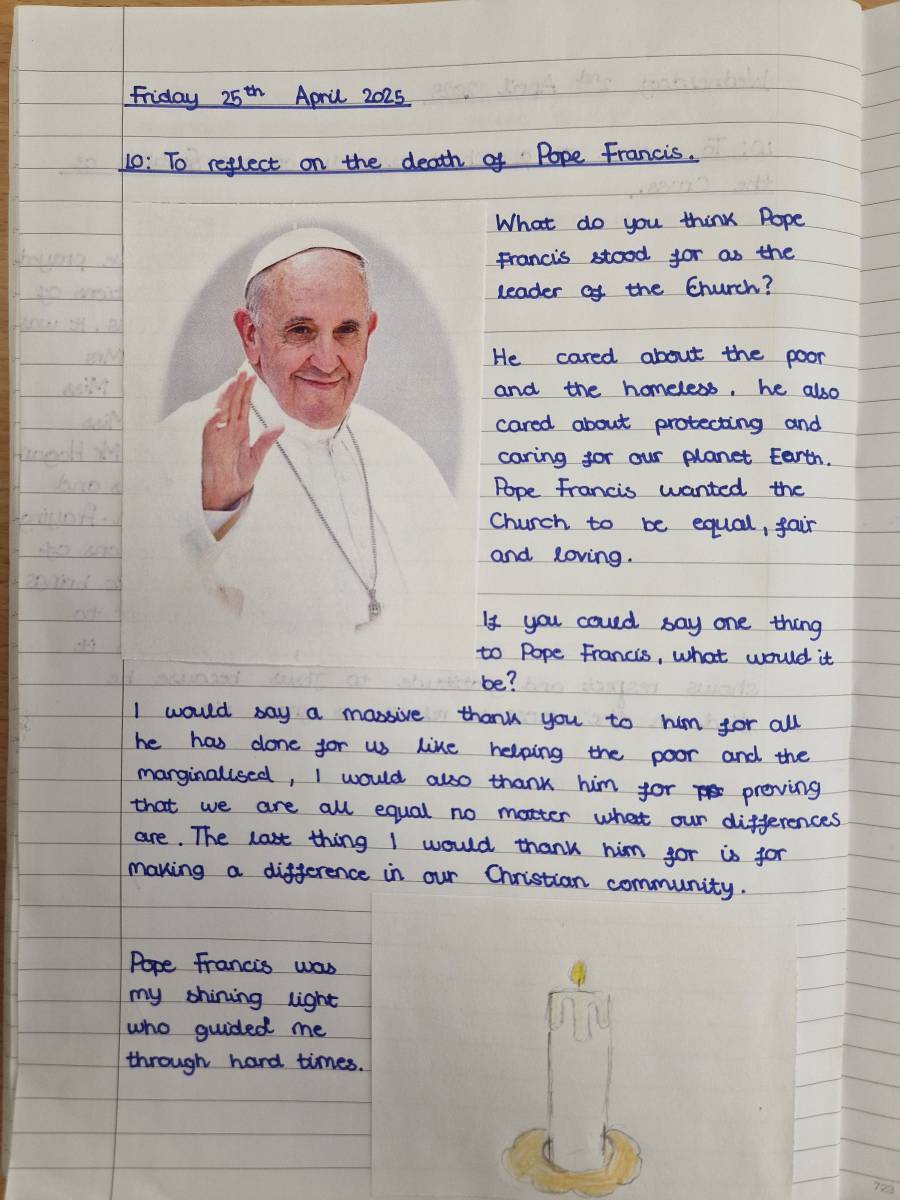 Friday 25th April 2025
LO: To reflect on the death of Pope Francis.
What do you think Pope
Francis stood for as the
leader of the Church?
He cared about the poor
and the homeless. he also
cared about protecting and
caring for our planet Earth.
Pope Francis wanted the
Church to be equal, fair
and loving.
If you could say one thing
to Pope Francis, what would it
be?
I would say a massive thank you to him for all
he has done for us like helping the poor and the
marginalised, I would also thank him for proving
that we are all equal no matter what our differences
are. The last thing I would thank him for is for
making a difference in our Christian community.
Pope Francis was
my shining light
who guided me
through hard times.
723